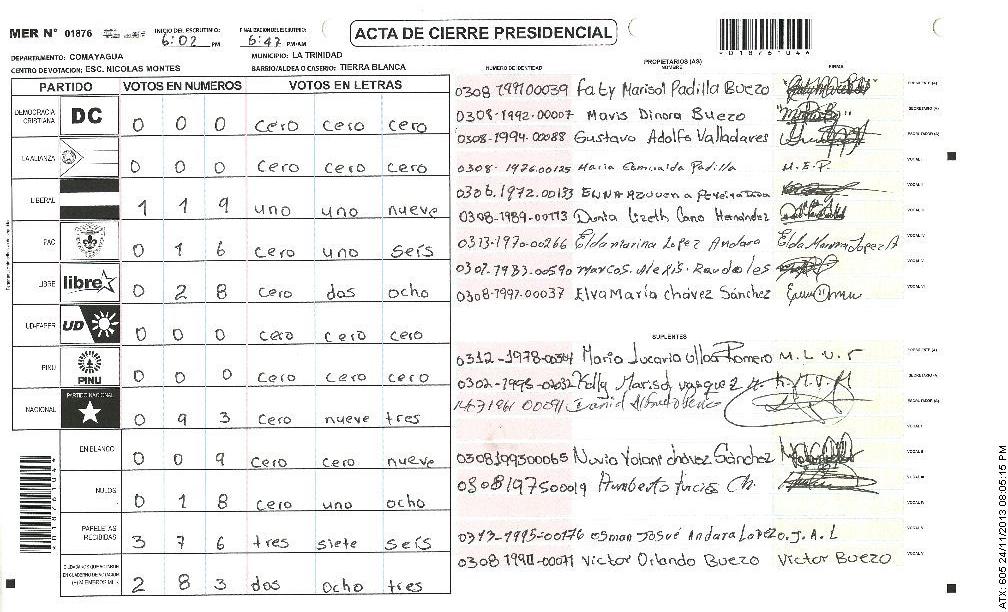 MER N° 01876 INICIO DEL ESCRUTINIO: 6:02 PM FINALIZACION DEL ESCRUTINIO: 6:47 PM/AM
ACTA DE CIERRE PRESIDENCIAL
DEPARTAMENTO: COMAYAGUA MUNICIPIO: LA TRINIDAD
CENTRO DE VOTACION: ESC. NICOLAS MONTES BARRIO/ALDEA O CASERIO: TIERRA BLANCA
PARTIDO VOTOS EN NUMEROS VOTOS EN LETRAS
DEMOCRACIA CRISTIANA DC 0 0 0 cero cero cero
LA ALIANZA 0 0 0 cero cero cero
LIBERAL 1 1 9 uno uno nueve
PAC 0 1 6 cero uno seis
LIBRE libre 0 2 8 cero dos ocho
UD-FAPER UD 0 0 0 cero cero cero
PINU PINU 0 0 0 cero cero cero
NACIONAL PARTIDO NACIONAL 0 9 3 cero nueve tres
EN BLANCO 0 0 9 cero cero nueve
NULOS 0 1 8 cero uno ocho
PAPELETAS RECIBIDAS 3 7 6 tres siete seis
2 8 3 dos ocho tres
PROPIETARIOS (AS)
NUMERO DE IDENTIDAD NOMBRE FIRMA
0308 199100039 Faty Marisol Padilla Buezo
0308-1992-00007 Maris Dinora Buezo
0308-1994-00088 Gustavo Adolfo Valladares
0308-1976-00125 Maria Esmeralda Padilla M.E.P.
0306.1972.00133
0308-1989-00173 Lizeth Cano Hernández
0313-1970-00266 Elda marina Lopez Andara Elda Marina Lopez A
Marcos Alexis Raudales
0308-1997-00037 Elva María chávez Sánchez
SUPLENTES
Maria Lucaria Ulloa Romero M.L.U.r
Kelly Marisol vasquez
0308199300065 Chávez Sánchez
0308197500019 Humberto
0313-1995-00176 Osman Josué Andara Lopez O.J.A.L
Victor Orlando Buezo Victor Buezo
ATX: 605 24/11/2013 08:05:15 PM